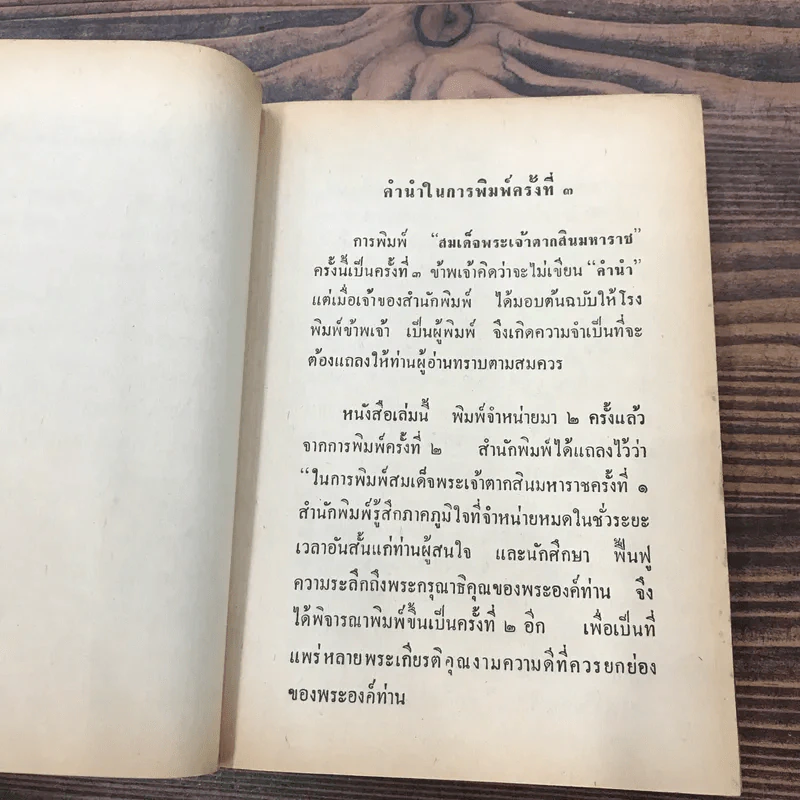 คำนำในการพิมพ์ครั้งที่ ๓
การพิมพ์ “สมเด็จพระเจ้าตากสินมหาราช”
ครั้งนี้เป็นครั้งที่ ๓ ข้าพเจ้าคิดว่าจะไม่เขียน “คำนำ”
แต่เมื่อเจ้าของสำนักพิมพ์ ได้มอบต้นฉบับให้โรง
พิมพ์ข้าพเจ้า เป็นผู้พิมพ์ จึงเกิดความจำเป็นที่จะ
ต้องแถลงให้ท่านผู้อ่านทราบตามสมควร
หนังสือเล่มนี้ พิมพ์จำหน่ายมา ๒ ครั้งแล้ว
จากการพิมพ์ครั้งที่ ๒ สำนักพิมพ์ได้แถลงไว้ว่า
“ในการพิมพ์สมเด็จพระเจ้าตากสินมหาราชครั้งที่ ๑
สำนักพิมพ์รู้สึกภาคภูมิใจที่จำหน่ายหมดในชั่วระยะ
เวลาอันสั้นแก่ท่านผู้สนใจ และนักศึกษา ฟื้นฟู
ความระลึกถึงพระกรุณาธิคุณของพระองค์ท่าน จึง
ได้พิจารณาพิมพ์ขึ้นเป็นครั้งที่ ๒ อีก เพื่อเป็นที่
แพร่หลายพระเกียรติคุณงามความดีที่ควรยกย่อง
ของพระองค์ท่าน